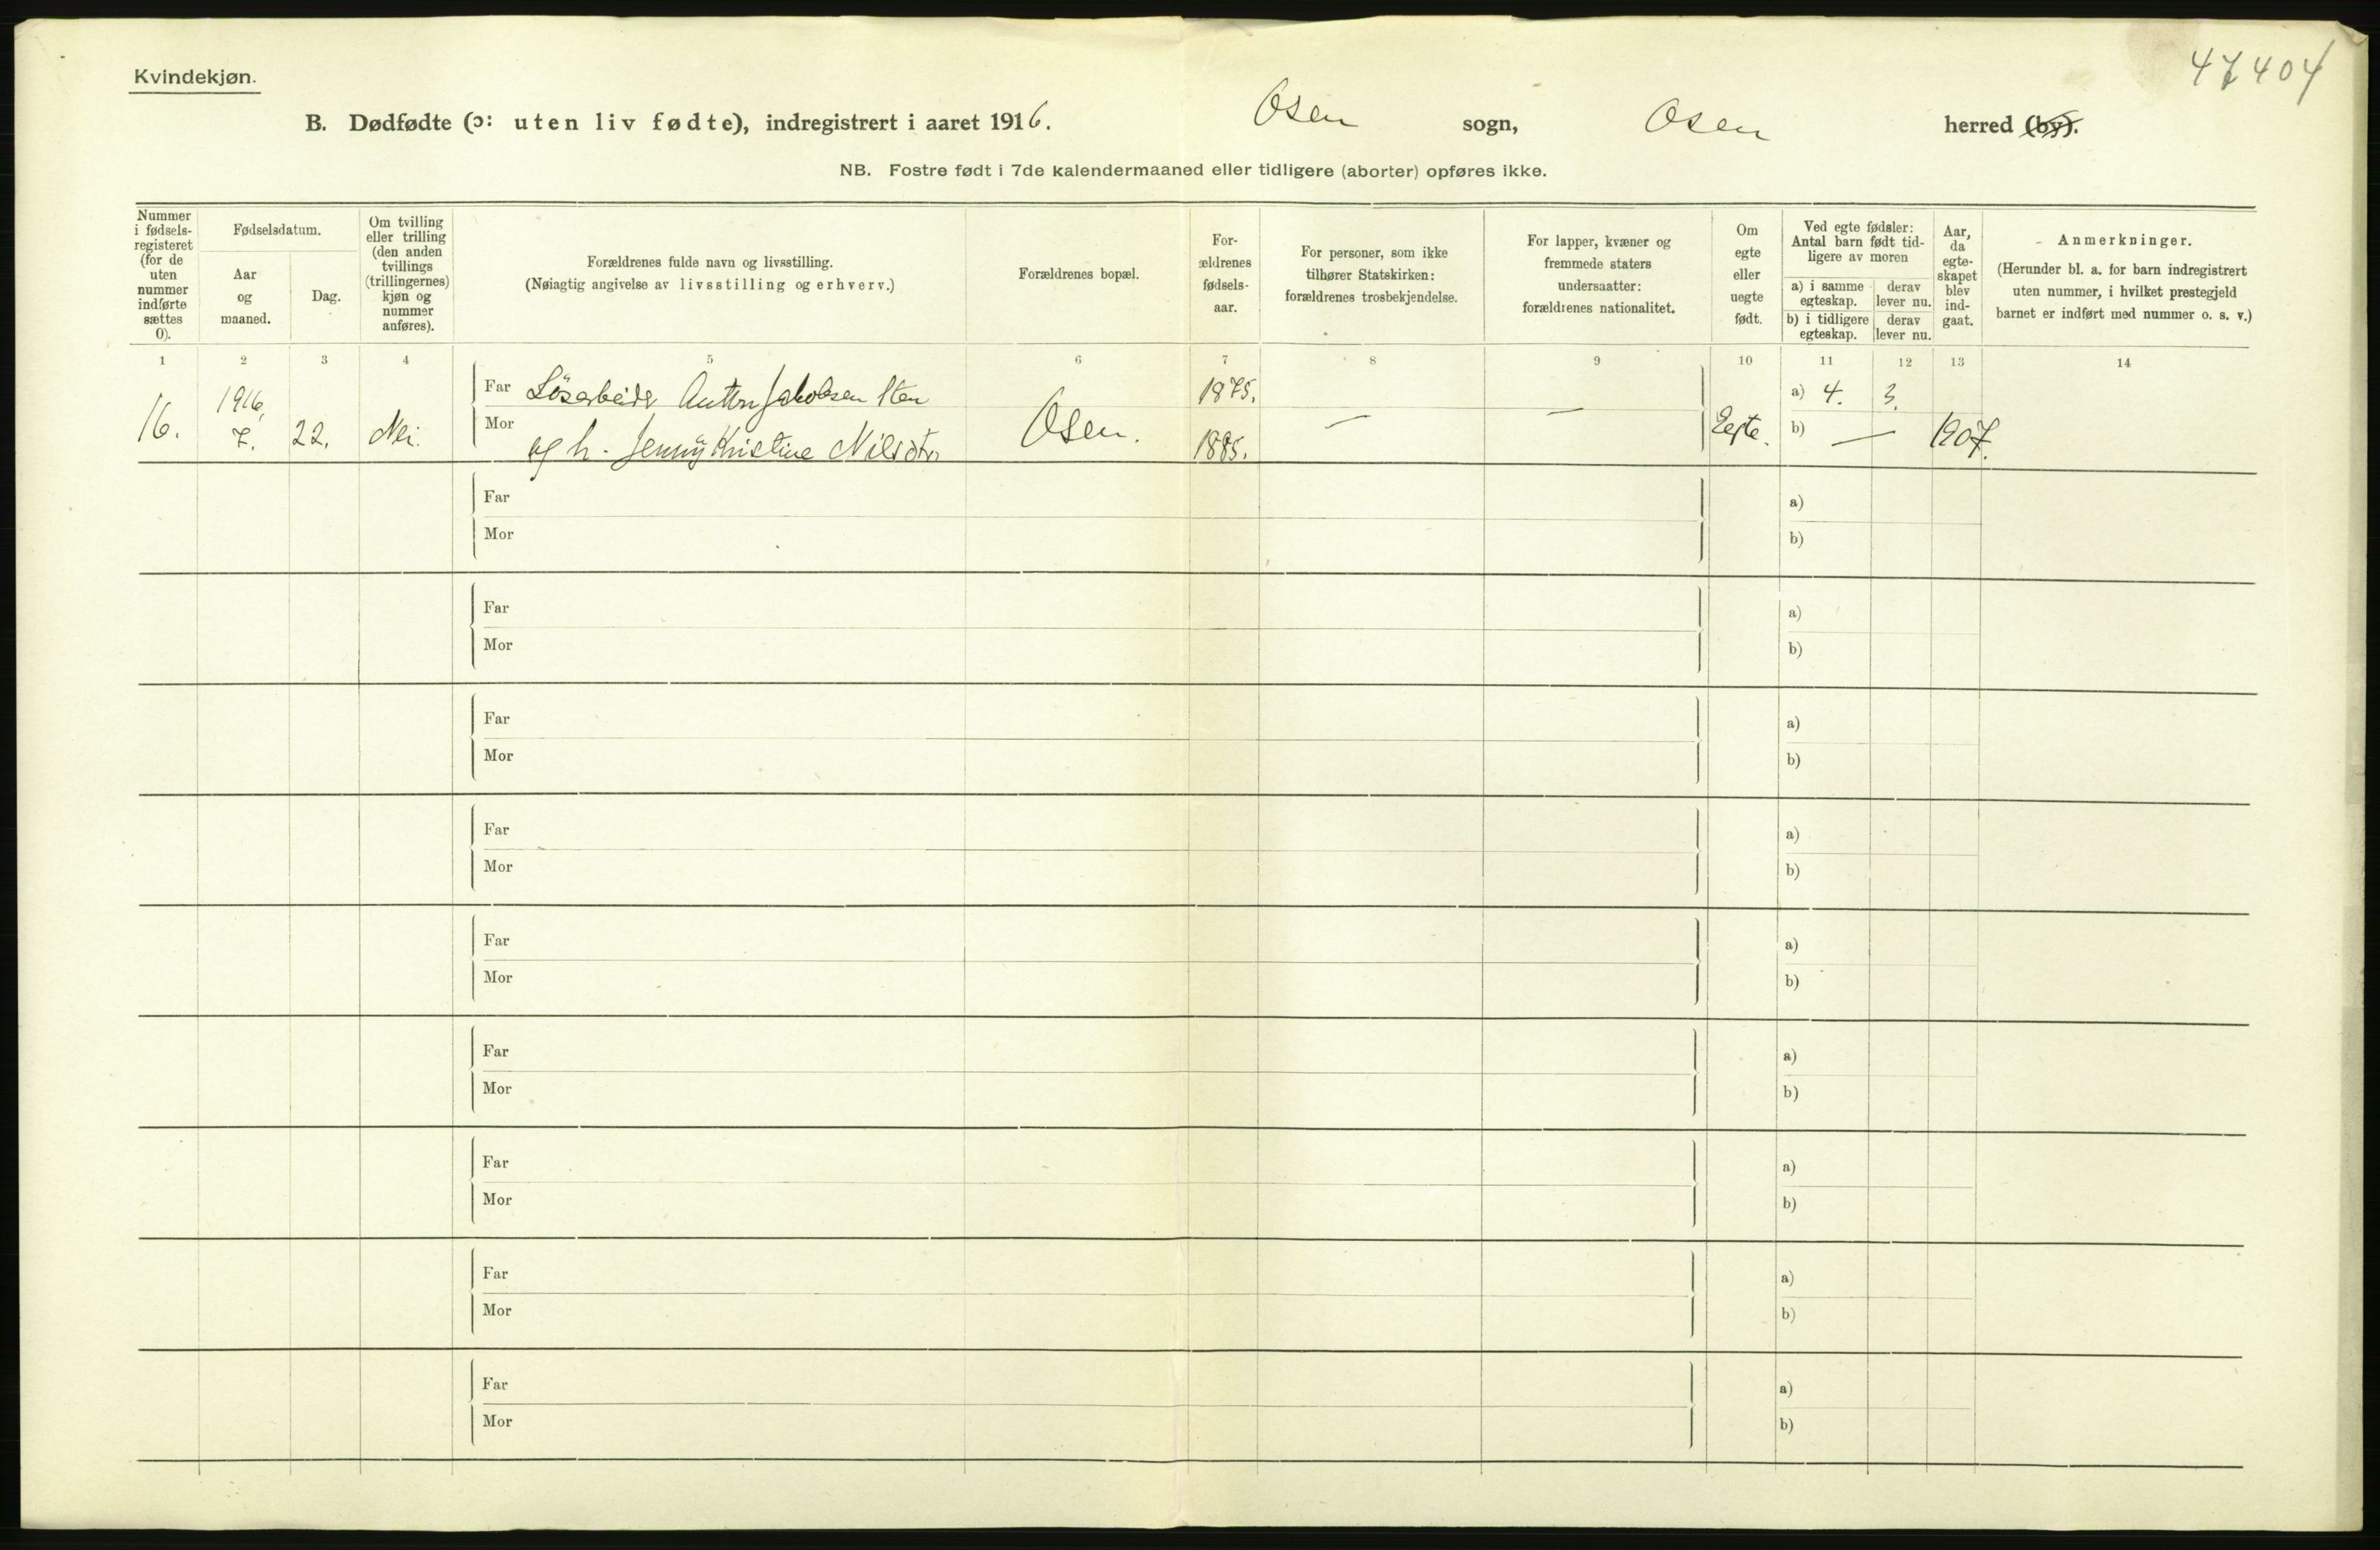 47404
Kvindekjøn.
B. Dødfødte (ɔ: uten liv fødte), indregistrert i aaret 1916. Osen sogn, Osen herred (by).
NB. Fostre født i 7de kalendermaaned eller tidligere (aborter) opføres ikke.
Nummer i fødsels-registeret (for de uten nummer indførte sættes 0).
Fødselsdatum.
Aar og maaned.
Dag.
Om tvilling eller trilling (den anden tvillings (trillingernes) kjøn og nummer anføres).
Forældrenes fulde navn og livsstilling.
(Nøiagtig angivelse av livsstilling og erhverv.)
Forældrenes bopæl.
For-ældrenes fødsels-aar.
For personer, som ikke tilhører Statskirken: forældrenes trosbekjendelse.
For lapper, kvæner og fremmede staters undersaatter: forældrenes nationalitet.
Om egte eller uegte født.
Ved egte fødsler: Antal barn født tid-ligere av moren
a) i samme egteskap.
derav lever nu.
b) i tidligere egteskap.
derav lever nu.
Aar, da egte-skapet blev ind-gaat.
Anmerkninger.
(Herunder bl. a. for barn indregistrert uten nummer, i hvilket prestegjeld barnet er indført med nummer o. s. v.)
1 2 3 4 5 6 7 8 9 10 11 12 13 14
Far Løsarbeider Anton Jakobsen Sten 1875. a) 4. 3.
16. 1916, 7. 22. Nei. Osen. — — Egte. 1907.
Mor og h. Jenny Kristine Nilsdtr 1885. b) —
Far a)
Mor b)
Far a)
Mor b)
Far a)
Mor b)
Far a)
Mor b)
Far a)
Mor b)
Far a)
Mor b)
Far a)
Mor b)
Far a)
Mor b)
Far a)
Mor b)